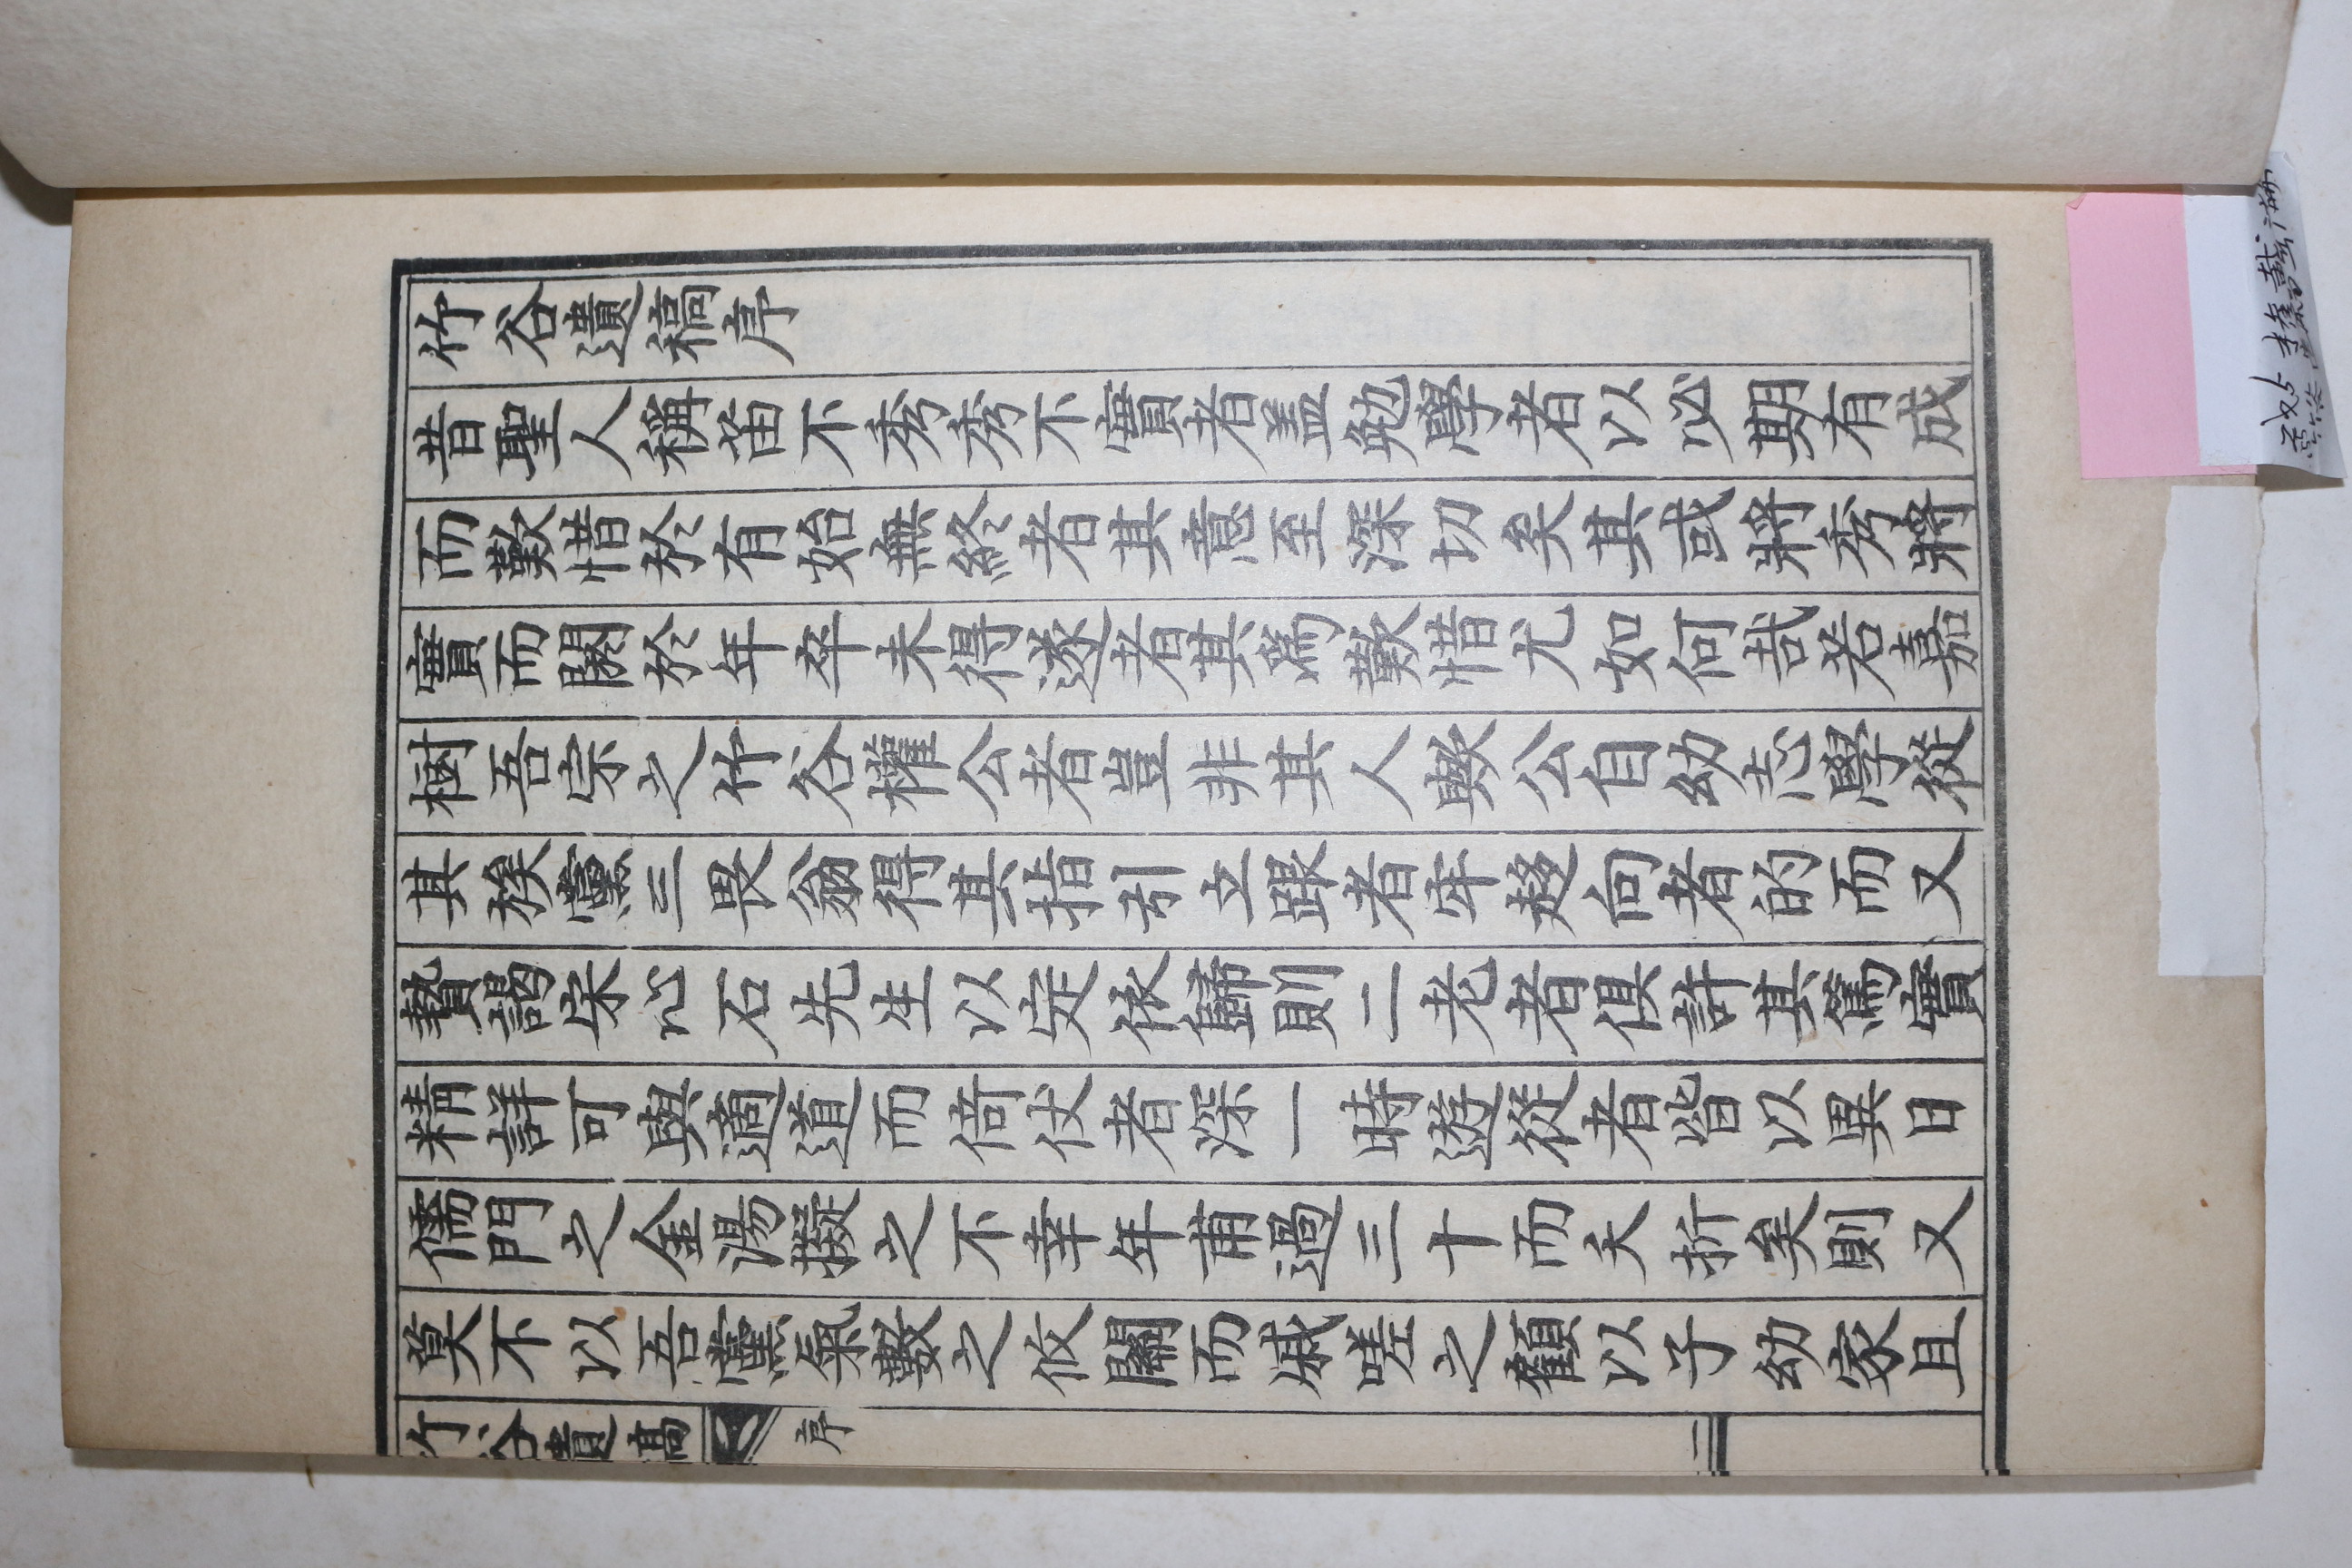 竹谷遺稿序
昔聖人稱苗不秀秀不實者盖勉學者以必期有成
而歎惜於有始無終者其意至深切矣其或將秀將
實而閼於年卒未得遂者其爲歎惜尤如何哉若嘉
樹吾宗之竹谷權公者豈非其人歟公自幼志學從
其族黨三畏翁得其指引立跟者牢趍向者的而又
贄謁宋心石先生以定依歸則二老者俱許其篤實
精詳可與適道而倚仗者深一時遊從者皆以異日
儒門之金湯擬之不幸年甫過三十而夭折矣則又
莫不以吾黨氣數之攸關而嗟之顧以子幼家且
竹谷遺稿 序 一